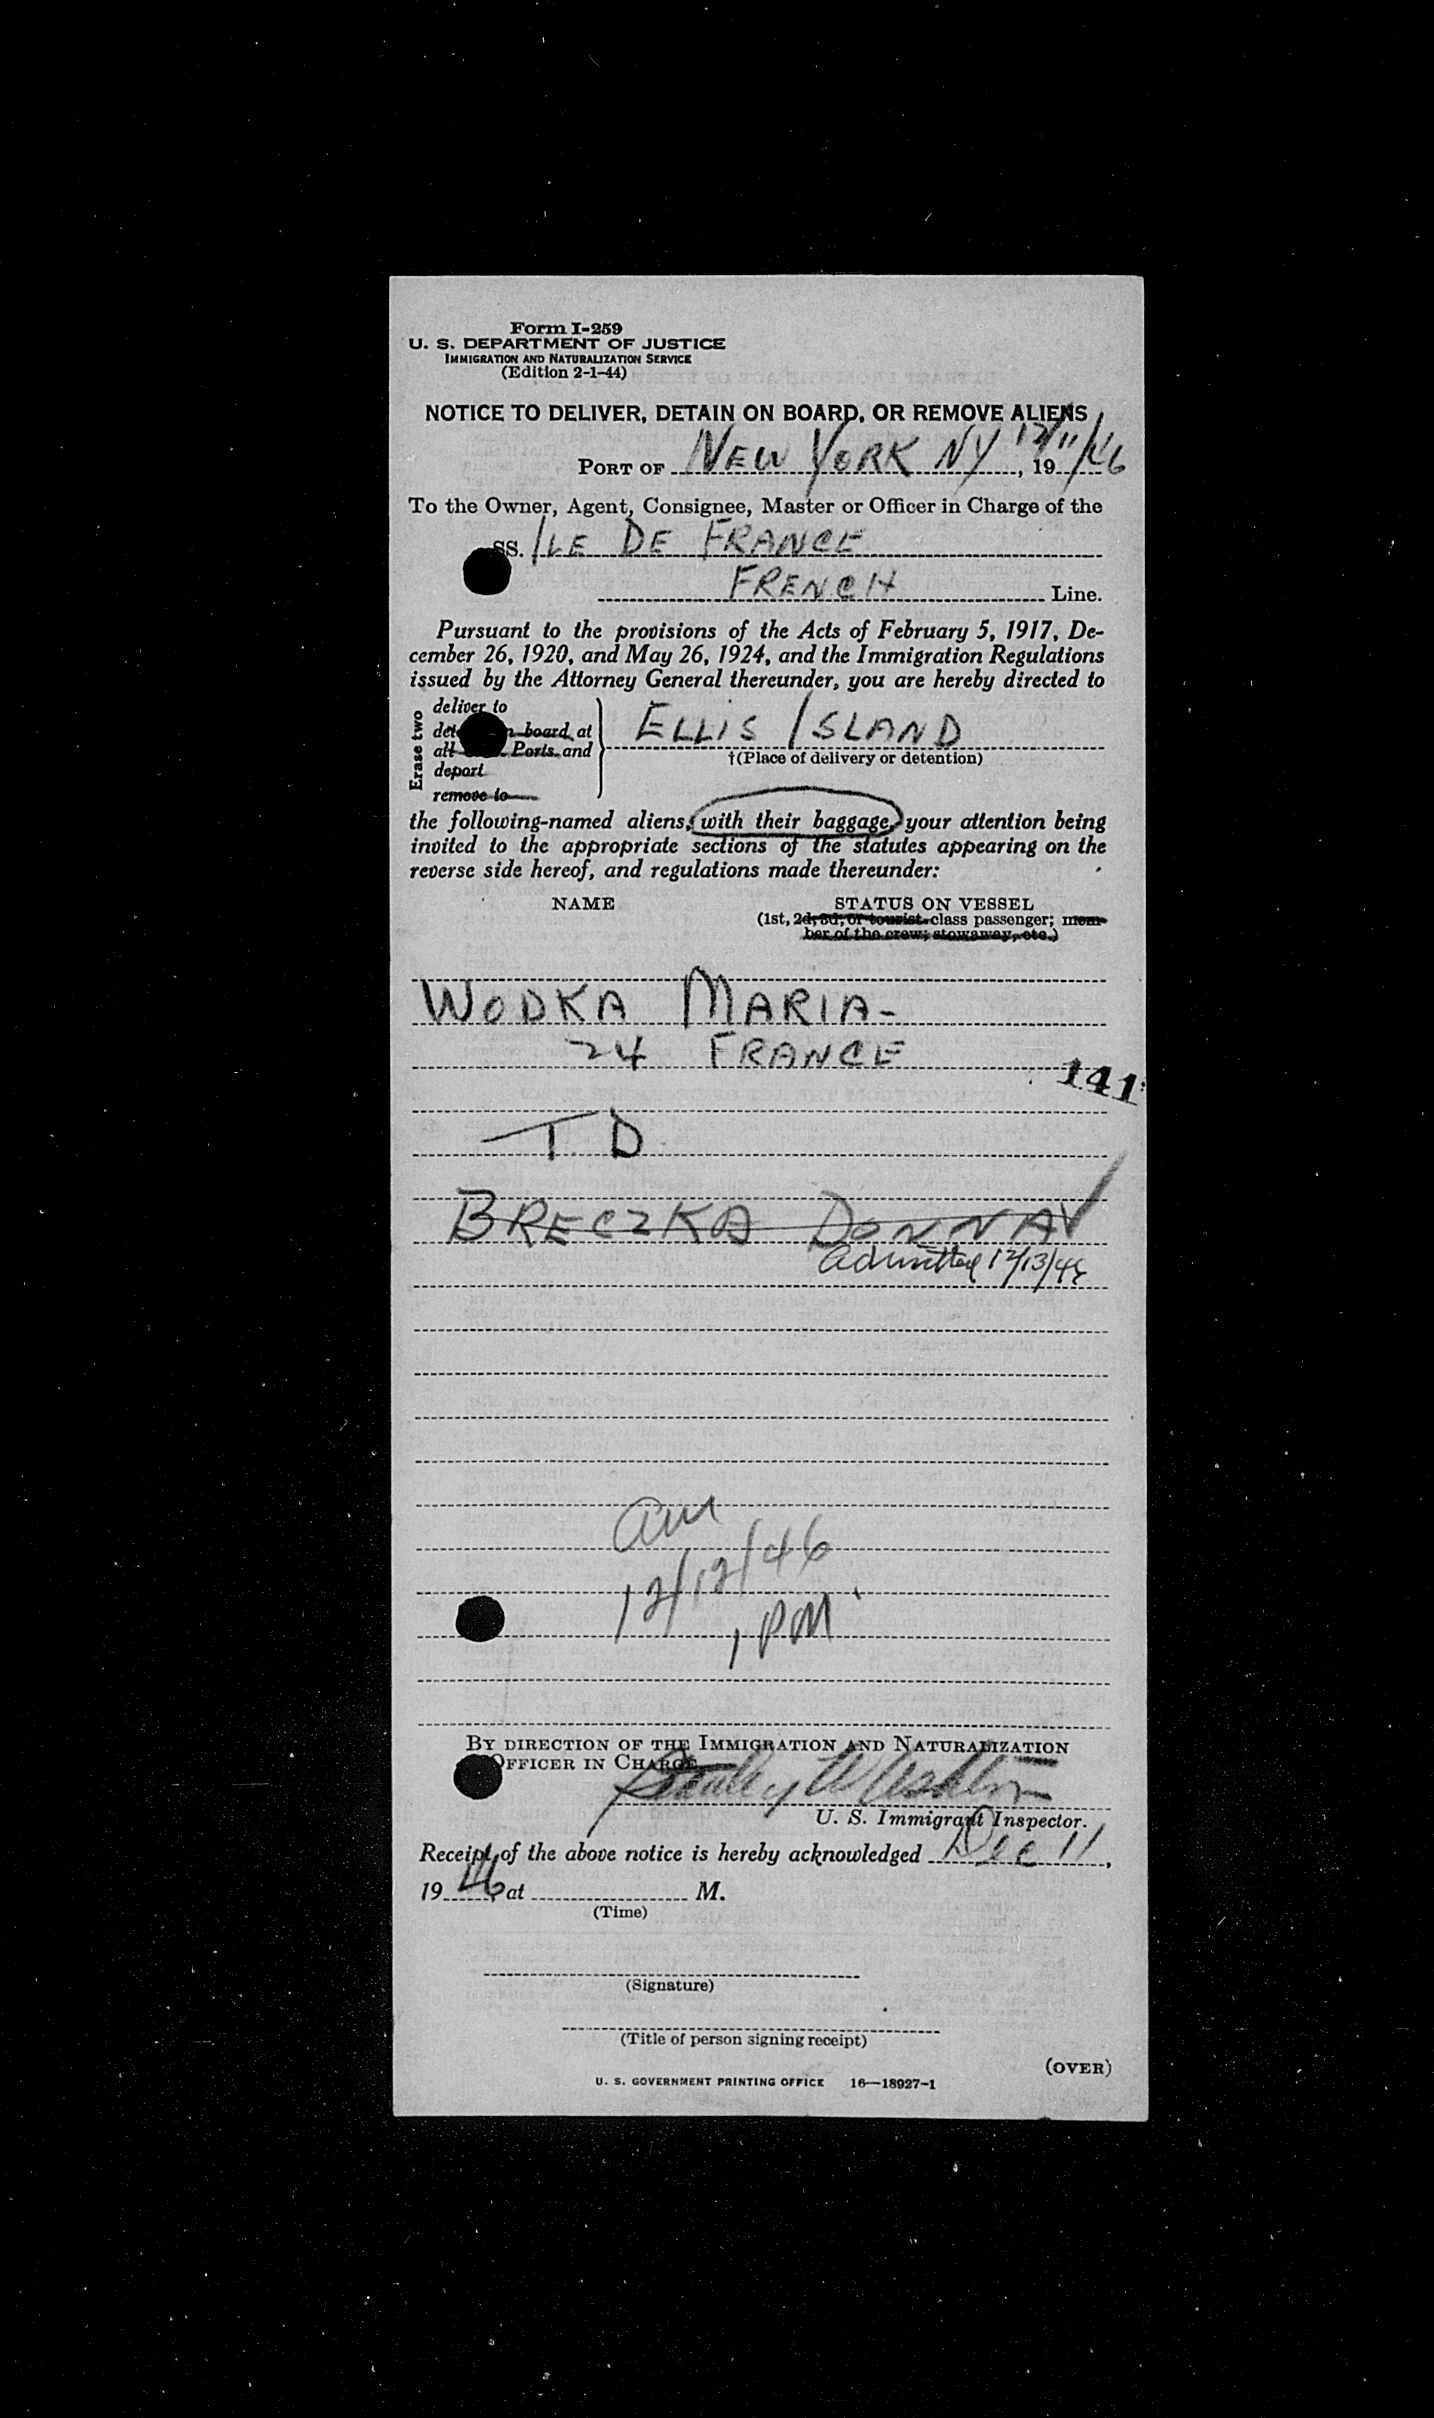 Form I-259
U. S. DEPARTMENT OF JUSTICE
IMMIGRATION AND NATURALIZATION SERVICE
(Edition 2-1-44)
NOTICE TO DELIVER, DETAIN ON BOARD, OR REMOVE ALIENS
PORT OF NEW YORK NY 12/11/46, 19
To the Owner, Agent, Consignee, Master or Officer in Charge of the
SS. ILE DE FRANCE
FRENCH Line.
Pursuant to the provisions of the Acts of February 5, 1917, De-
cember 26, 1920, and May 26, 1924, and the Immigration Regulations
issued by the Attorney General thereunder, you are hereby directed to
Erase two
deliver to
board at
all Ports and
deport
remove to
ELLIS ISLAND
†(Place of delivery or detention)
the following-named aliens, with their baggage, your attention being
invited to the appropriate sections of the statutes appearing on the
reverse side hereof, and regulations made thereunder:
NAME STATUS ON VESSEL
(1st, 2d, 3d, or tourist class passenger; mem-
ber of the crew; stowaway, etc.)
WODKA MARIA-
24 FRANCE
141
T D
BRECZKA DONNA
admitted 12/13/46
12/12/46
1 PM
BY DIRECTION OF THE IMMIGRATION AND NATURALIZATION
OFFICER IN CHARGE
Stanley W Ashton
U. S. Immigrant Inspector.
Receipt of the above notice is hereby acknowledged Dec 11,
1946, at M.
(Time)
(Signature)
(Title of person signing receipt)
(OVER)
U. S. GOVERNMENT PRINTING OFFICE 16—18927-1